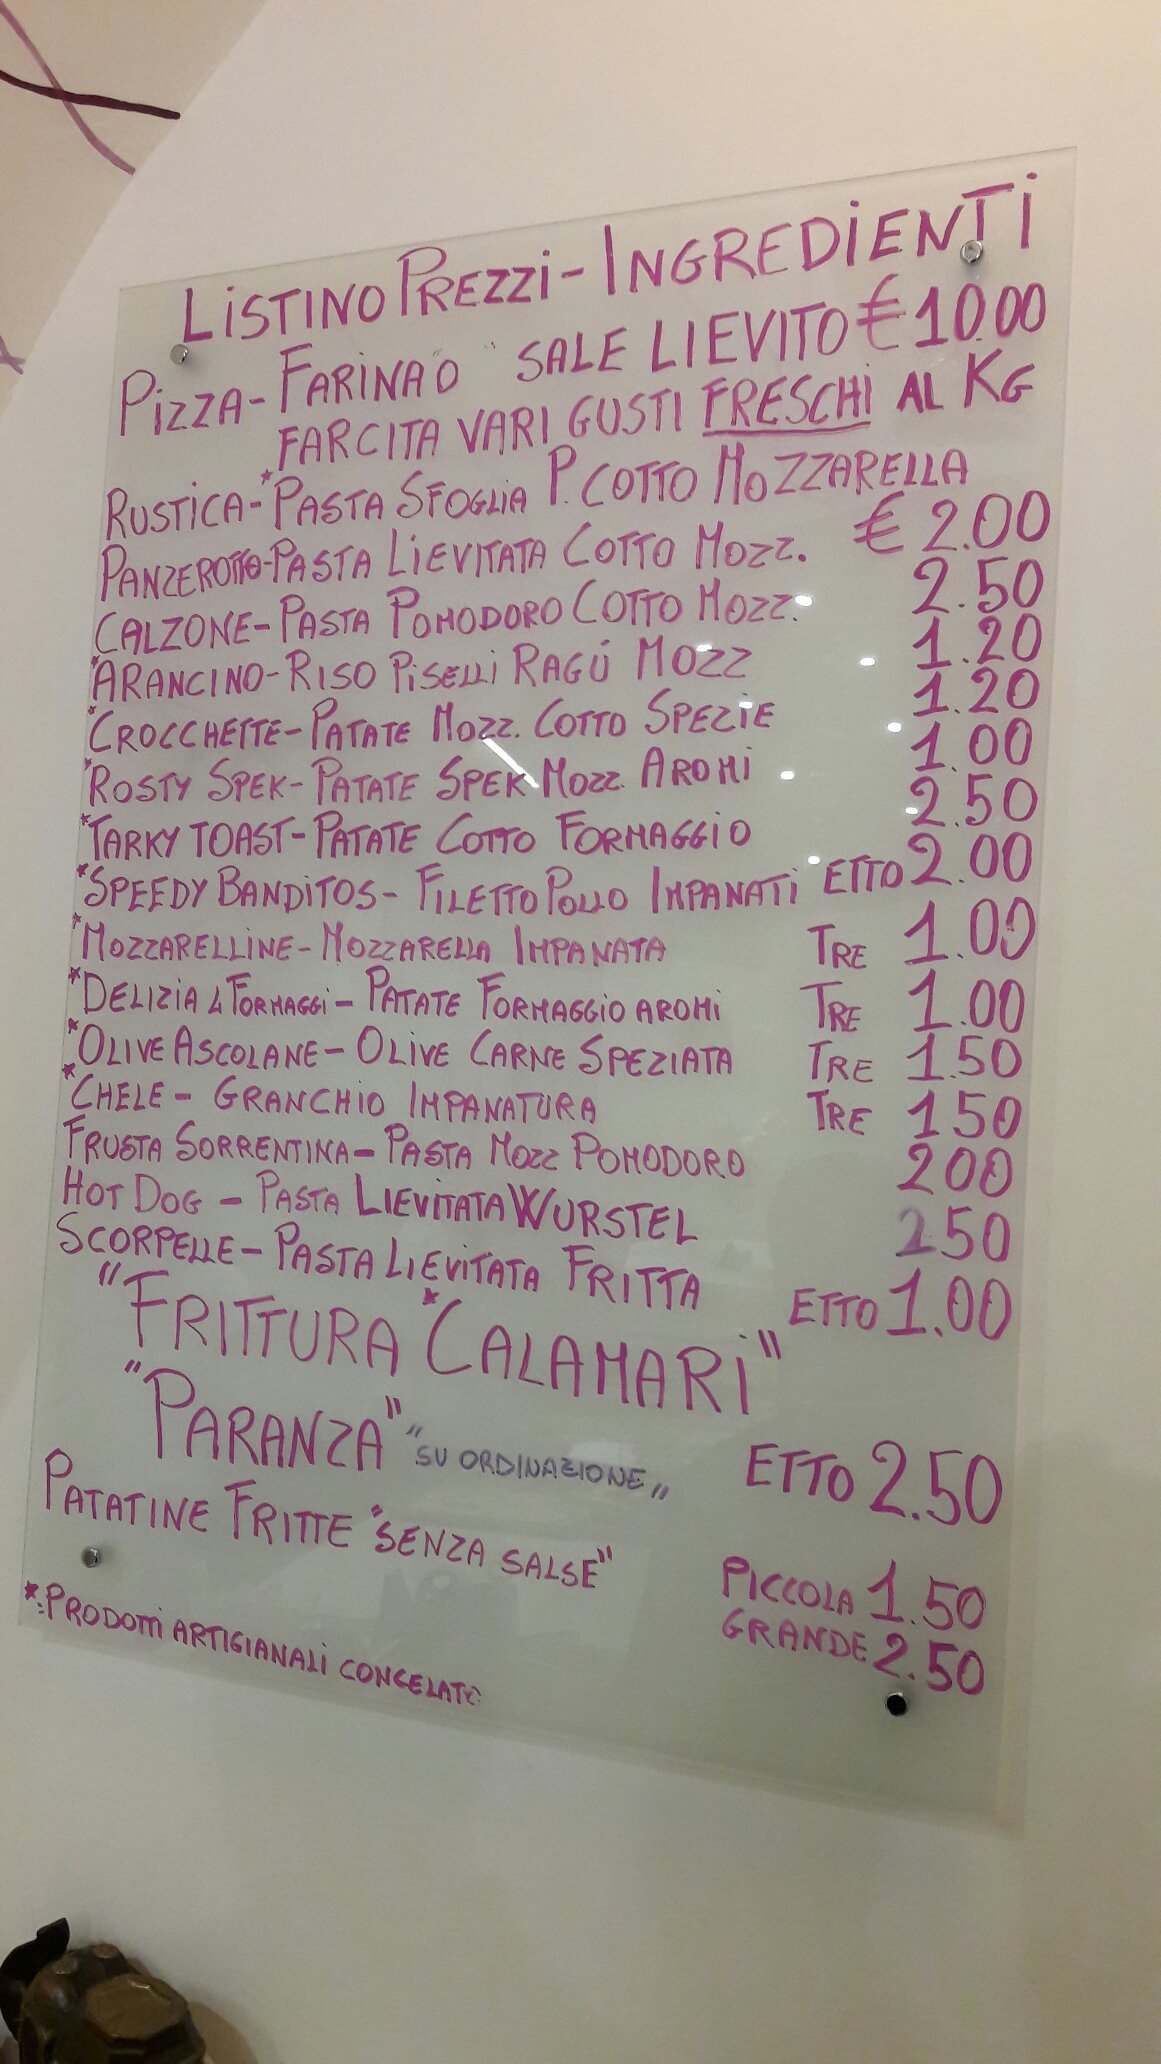 LISTINO PREZZI - INGREDIENTI
PIZZA - FARINA O SALE LIEVITO € 10.00
FARCITA VARI GUSTI FRESCHI AL KG
RUSTICA - *PASTA SFOGLIA P. COTTO MOZZARELLA € 2.00
PANZEROTTO - PASTA LIEVITATA COTTO MOZZ. 2.50
CALZONE - PASTA POMODORO COTTO MOZZ. 1.20
*ARANCINO - RISO PISELLI RAGÚ MOZZ 1.20
*CROCCHETTE - PATATE MOZZ. COTTO SPEZIE 1.00
*ROSTY SPEK - PATATE SPEK MOZZ. AROMI 2.50
*TARKY TOAST - PATATE COTTO FORMAGGIO 2.00
*SPEEDY BANDITOS - FILETTO POLLO IMPANATI ETTO
*MOZZARELLINE - MOZZARELLA IMPANATA TRE 1.00
*DELIZIA 4 FORMAGGI - PATATE FORMAGGIO AROMI TRE 1.00
*OLIVE ASCOLANE - OLIVE CARNE SPEZIATA TRE 1.50
*CHELE - GRANCHIO IMPANATURA TRE 1.50
FRUSTA SORRENTINA - PASTA MOZZ POMODORO 2.00
HOT DOG - PASTA LIEVITATA WURSTEL 2.50
SCORPELLE - PASTA LIEVITATA FRITTA ETTO 1.00
"FRITTURA *CALAMARI"
"PARANZA" "SU ORDINAZIONE" ETTO 2.50
PATATINE FRITTE "SENZA SALSE" PICCOLA 1.50
GRANDE 2.50
*: PRODOTTI ARTIGIANALI CONGELATI